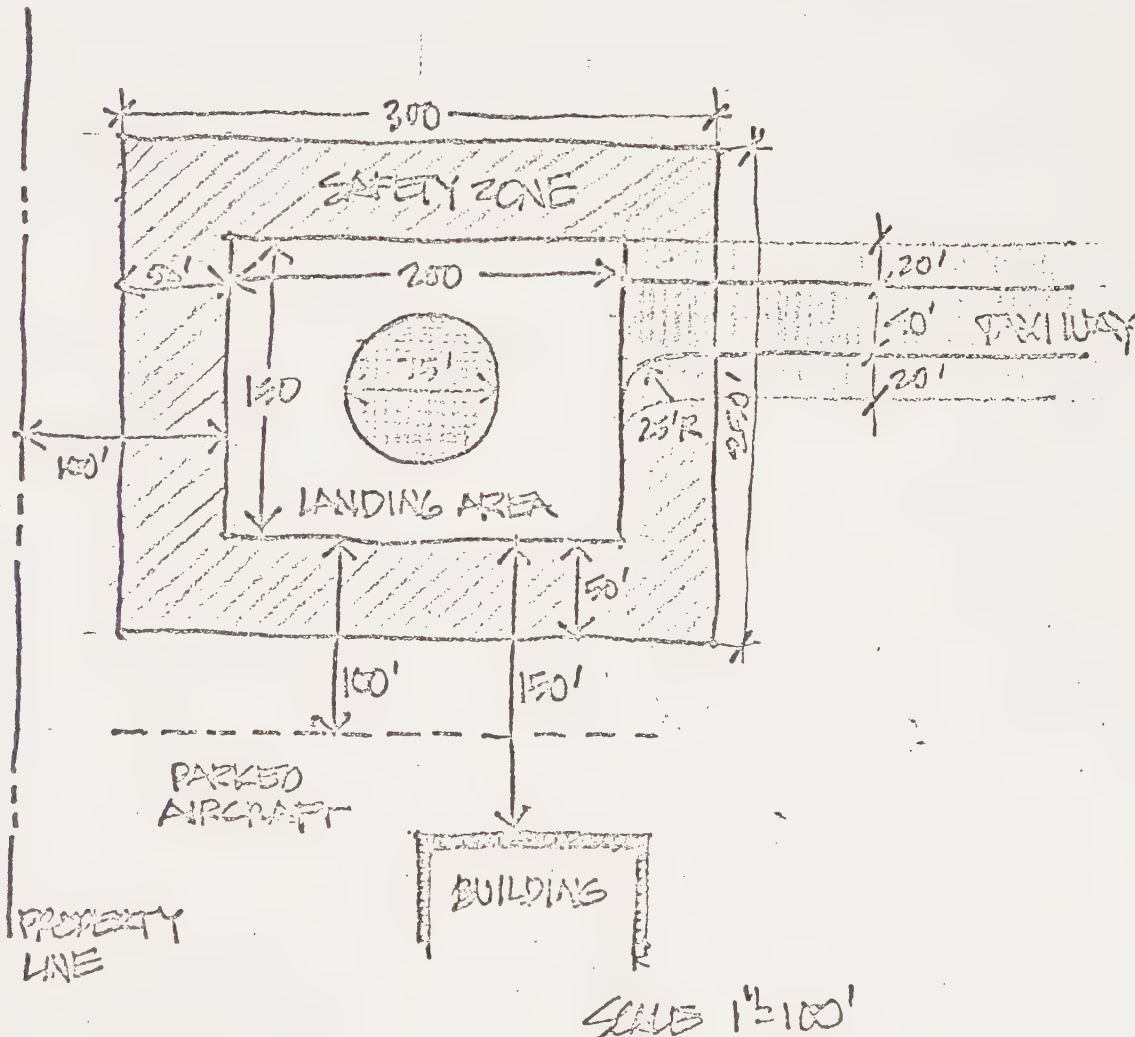 300
SAFETY ZONE
50'
200
20'
40' TAXIWAY
20'
150
75'
25'R
250'
100'
LANDING AREA
50'
100'
150'
PARKED
AIRCRAFT
BUILDING
PROPERTY
LINE
SCALE 1"=100'